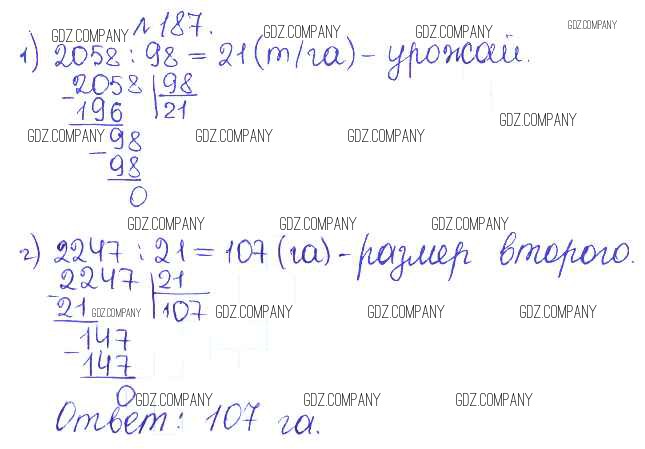 №187.
GDZ.COMPANY GDZ.COMPANY GDZ.COMPANY GDZ.COMPANY
1) 2058 : 98 = 21 (т/га) - урожай.
-2058 | 98
196 | 21
GDZ.COMPANY
GDZ.COMPANY 98 GDZ.COMPANY GDZ.COMPANY
- 98
0
GDZ.COMPANY GDZ.COMPANY GDZ.COMPANY
2) 2247 : 21 = 107 (га) - размер второго.
-2247 | 21
21 GDZ.COMPANY | 107 GDZ.COMPANY GDZ.COMPANY GDZ.COMPANY
147
- 147
0 GDZ.COMPANY GDZ.COMPANY GDZ.COMPANY
Ответ: 107 га.